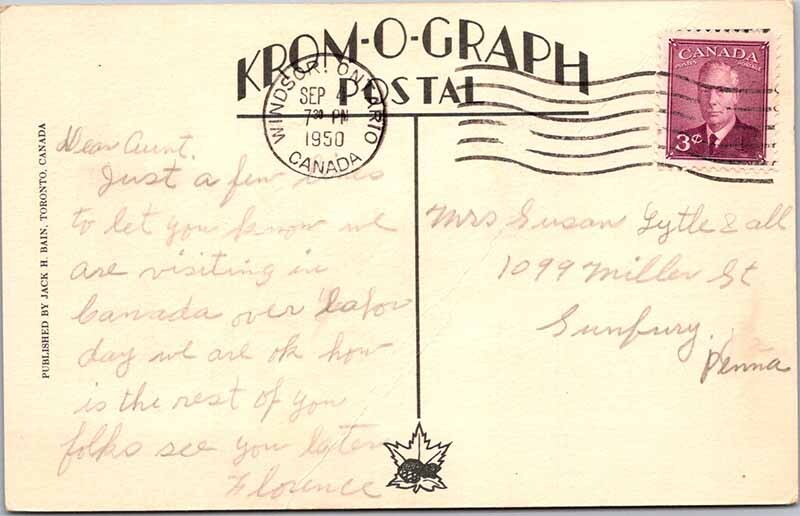 KROM-O-GRAPH
POSTAL
WINDSOR, ONTARIO
SEP 4
7 30 PM
1950
CANADA
CANADA
POSTES POSTAGE
3¢
PUBLISHED BY JACK H. BAIN, TORONTO, CANADA
Dear Aunt.
Just a few lines
to let you know we
are visiting in
Canada over Labor
day we are ok how
is the rest of you
folks see you later
Florence
Mrs Susan Lytle & all
1099 Miller St
Sunbury,
Penna